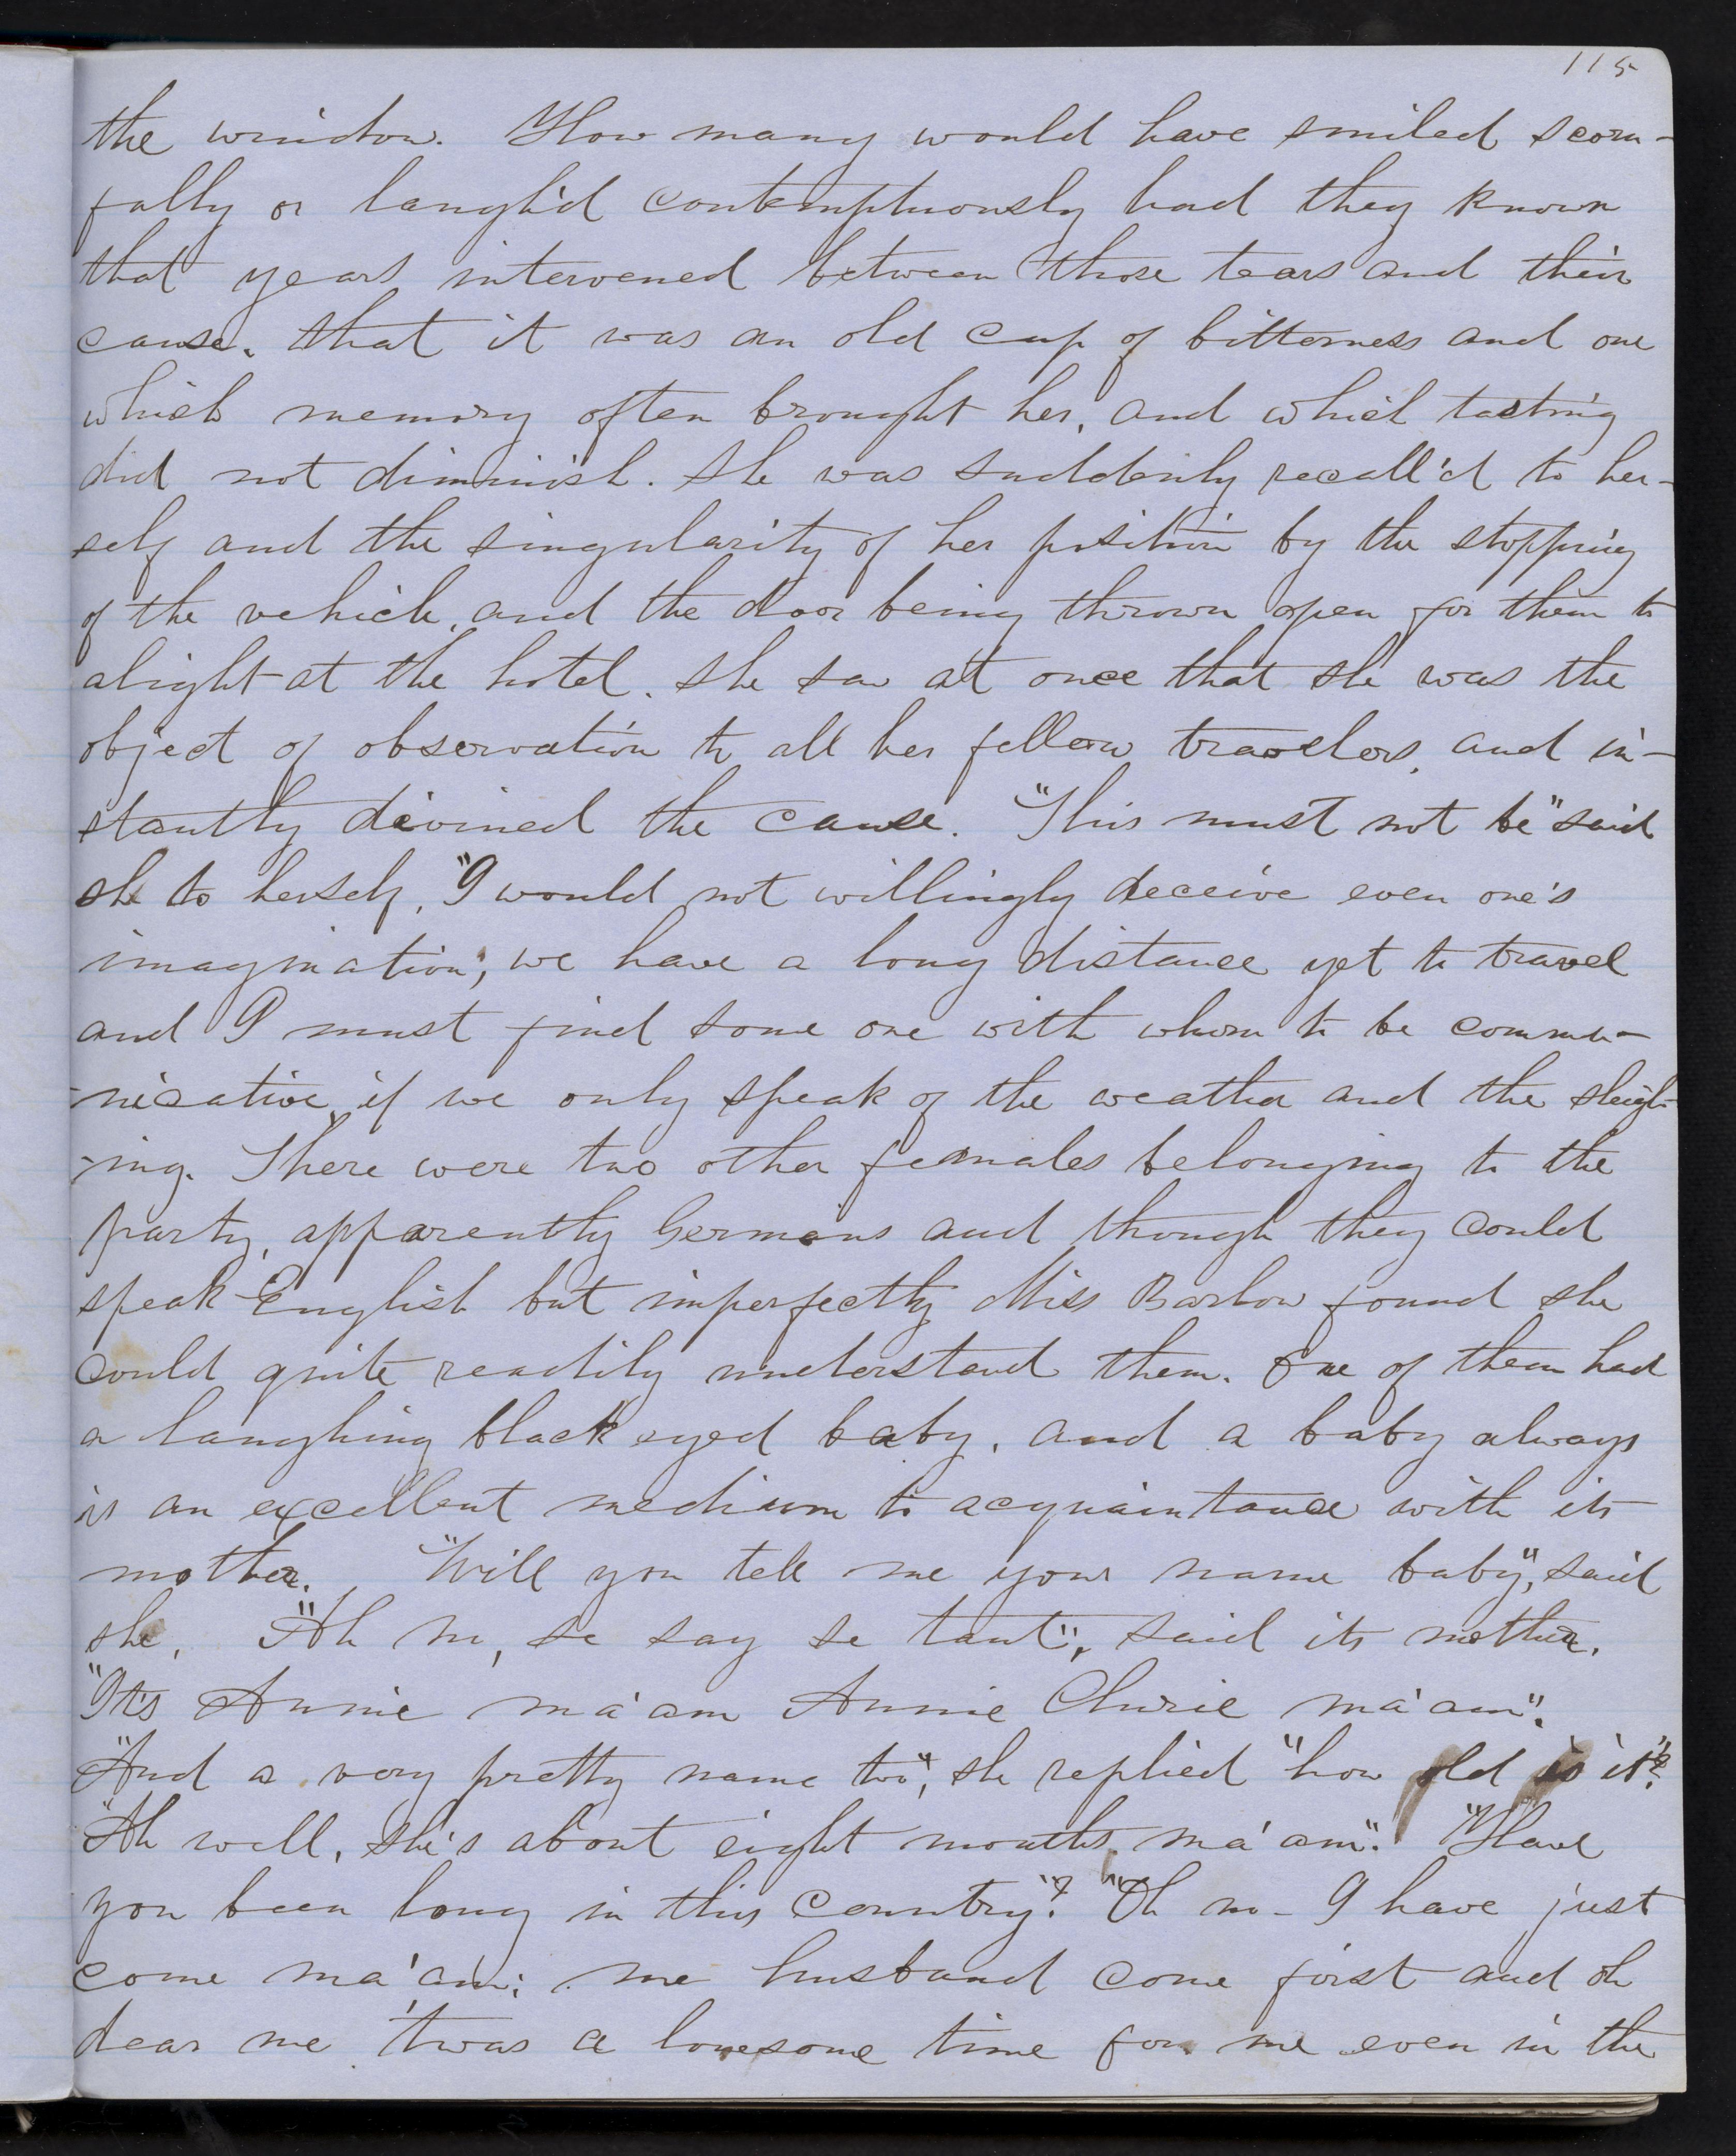 115
the window. How many would have smiled scorn-
fully or laugh'd contemptuously had they known
that years intervened between those tears and their
cause. that it was an old cup of bitterness and one
which memory often brought her, and which tasting
did not diminish. She was suddenly recall'd to her-
self and the singularity of her position by the stopping
of the vehicle, and the door being thrown open for them to
alight at the hotel. she saw at once that she was the
object of observation to all her fellow travelers, and in-
stantly divined the cause. "This must not be" said
she to herself, "I would not willingly deceive even one's
imagination; we have a long distance yet to travel
and I must find some one with whom to be commu-
-nicative, if we only speak of the weather and the sleigh-
-ing. There were two other females belonging to the
party, apparently Germans and though they could
speak English but imperfectly Miss Barlow found she
could quite readily understand them. One of them had
a laughing black eyed baby, and a baby always
is an excellent medium to acquaintance with its
mother. "Will you tell me your name baby", said
she. "Ah no, se say se tant", said its mother.
"It's Annie ma'am Annie ma'am".
"And a very pretty name too", she replied "how old is it"?
"Ah well, she's about eight months, ma'am". "Have
you been long in this country"? "Oh no - I have just
come ma'am; me husband come first and oh
dear me 'twas a lonesome time for me even in the